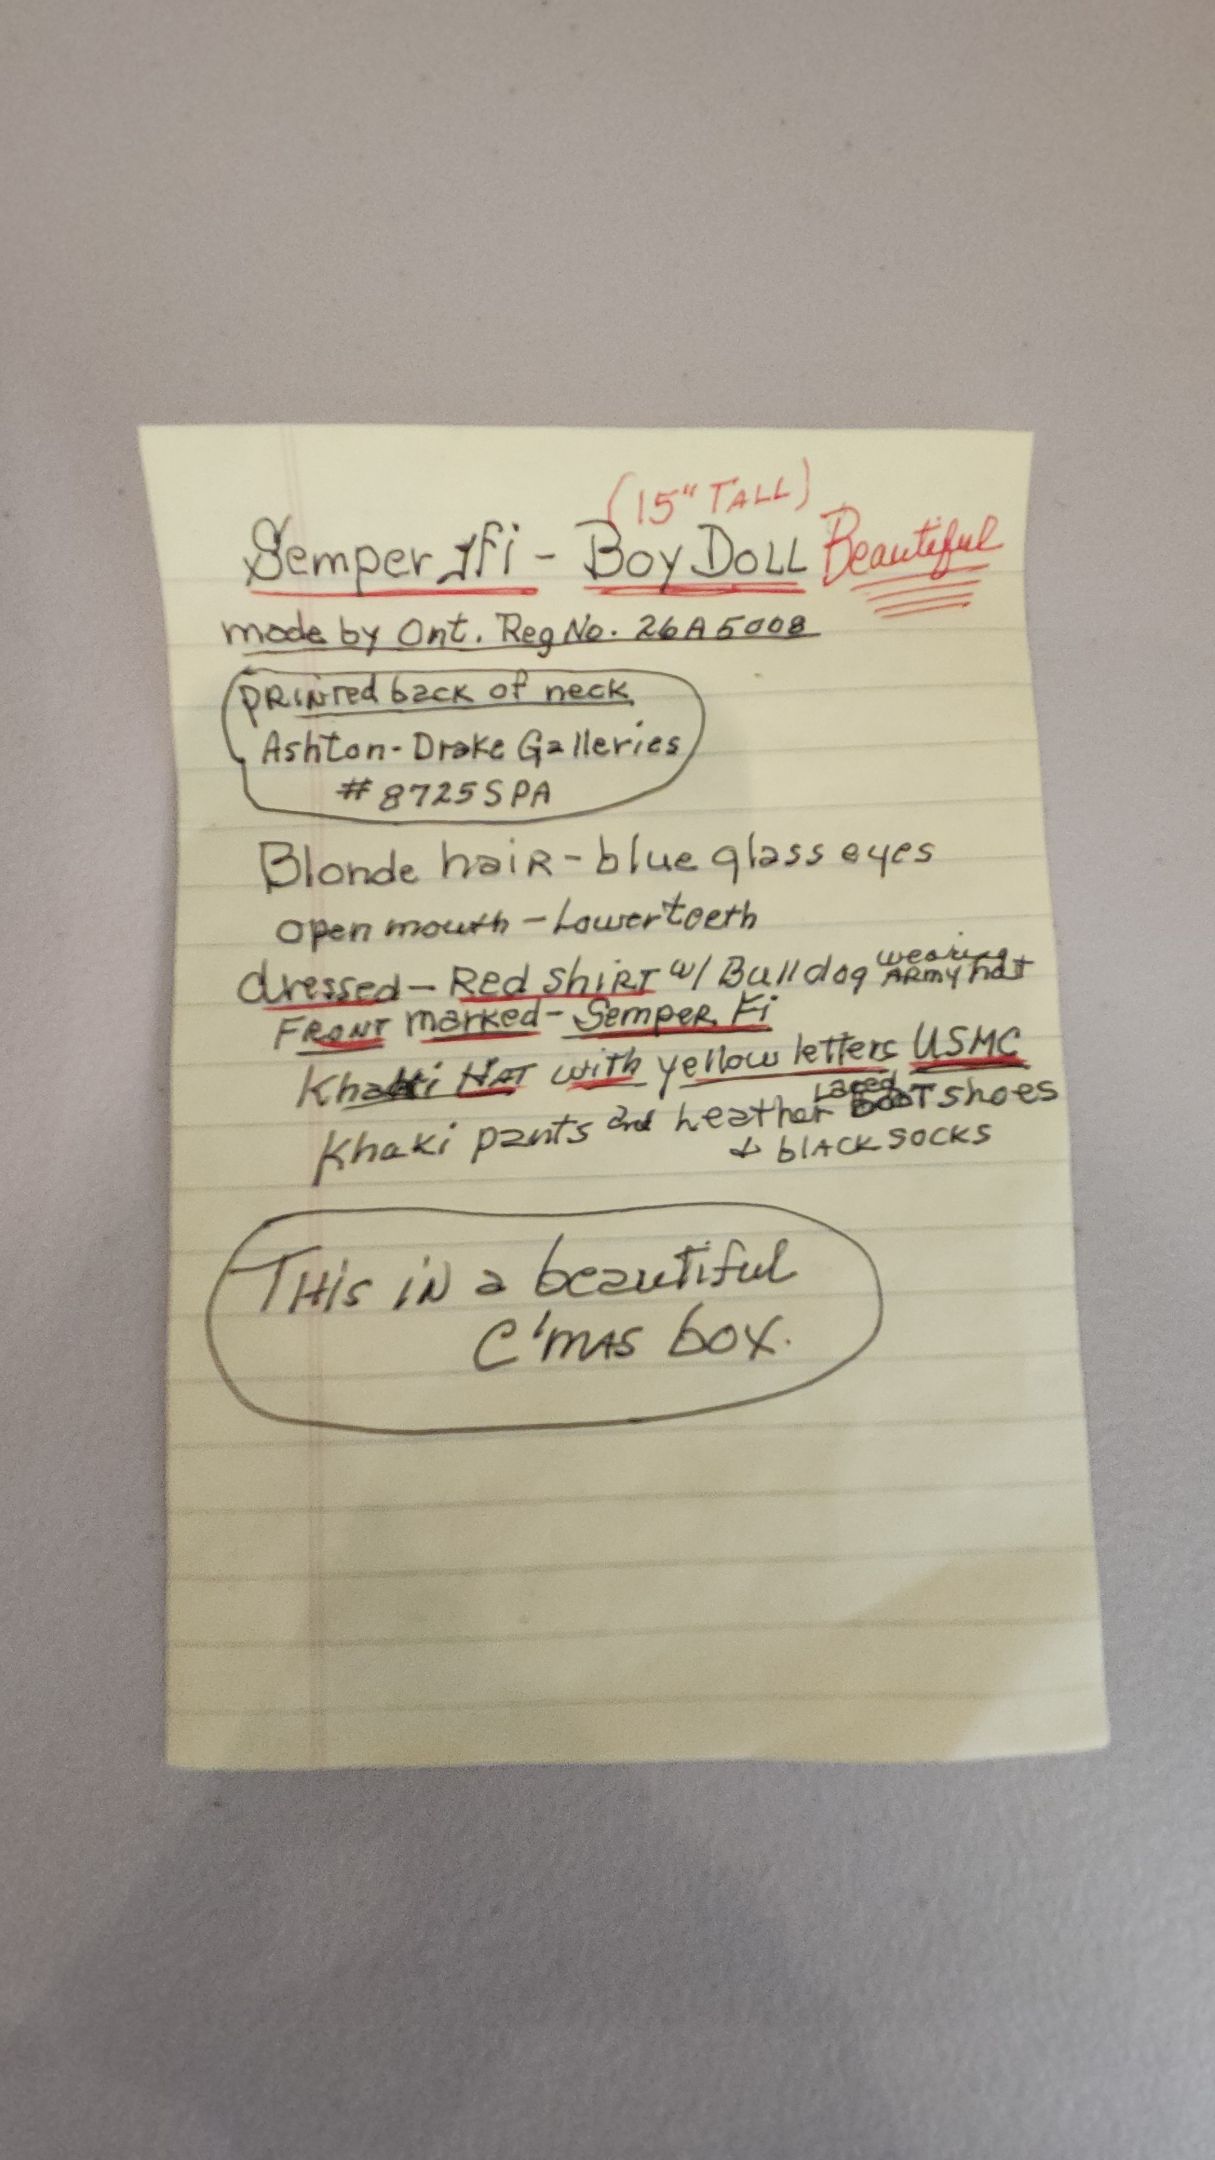 (15" TALL)
Semper Fi - Boy DOLL Beautiful
made by Ont. Reg No. 26A5008
PRINTed back of neck
Ashton-Drake Galleries
# 8725SPA
Blonde haiR - blue glass eyes
open mouth - Lower teeth
dressed - Red ShiRT w/ Bulldog wearing ARMY hat
FRONT maRKed - Semper Fi
Khaki HAT with yellow letters USMC
Khaki pants and heather Laced BooT shoes
& bLACK SOCKS
THis iN a beautiful
C'MAS box.